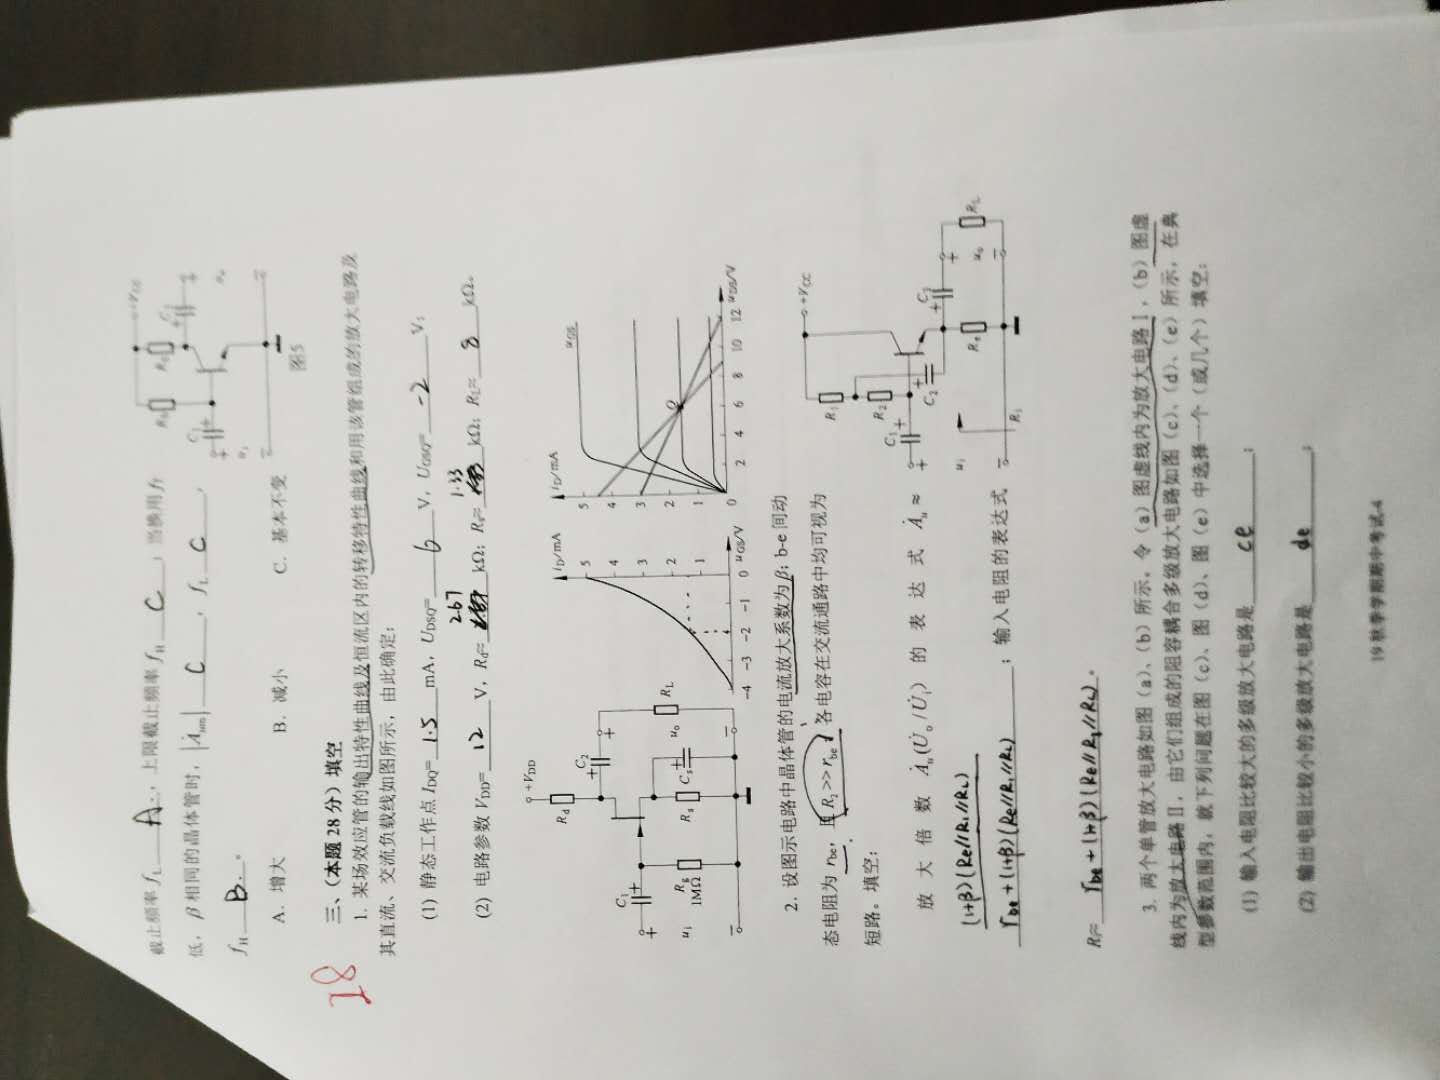 截止频率 fL A. ，上限截止频率 fH C ；当换用 fT
低，β 相同的晶体管时，|Ȧusm| C ，fL C ，
fH B. 。
A．增大 B．减小 C．基本不变
+VCC
Rb Rc C2 C1 + + ui uo
图5
28
三、（本题 28 分）填空
1. 某场效应管的输出特性曲线及恒流区内的转移特性曲线和用该管组成的放大电路及
其直流、交流负载线如图所示，由此确定：
(1) 静态工作点 IDQ= 1.5 mA，UDSQ= 6 V，UGSQ= -2 V；
2.67 1.33
(2) 电路参数 VDD= 12 V，Rd≈ kΩ；Rs≈ kΩ；RL≈ 8 kΩ。
+VDD
Rd C2 + C1 + ui Rg 1MΩ Rs Cs + uo RL
iD/mA 5 4 3 2 1 -4 -3 -2 -1 0 uGS/V
iD/mA uGS 5 4 3 2 1 0 Q 2 4 6 8 10 12 uDS/V
2. 设图示电路中晶体管的电流放大系数为 β；b-e 间动
态电阻为 rbe，且 R2>>rbe；各电容在交流通路中均可视为
短路。填空：
+VCC
R1 R2 C1 + C2 + + C3 ui Re uo RL Ri
放大倍数 Ȧu(U̇o/U̇i) 的表达式 Ȧu≈
(1+β)(Re//R1//RL)
rbe+(1+β)(Re//R1//RL) ；输入电阻的表达式
Ri≈ rbe+(1+β)(Re//R1//RL) 。
3. 两个单管放大电路如图（a）、（b）所示。令（a）图虚线内为放大电路Ⅰ，（b）图虚
线内为放大电路Ⅱ，由它们组成的阻容耦合多级放大电路如图（c）、（d）、（e）所示，在典
型参数范围内，就下列问题在图（c）、图（d）、图（e）中选择一个（或几个）填空：
(1) 输入电阻比较大的多级放大电路是 ce ；
(2) 输出电阻比较小的多级放大电路是 de ；
19 秋季学期期中考试-4